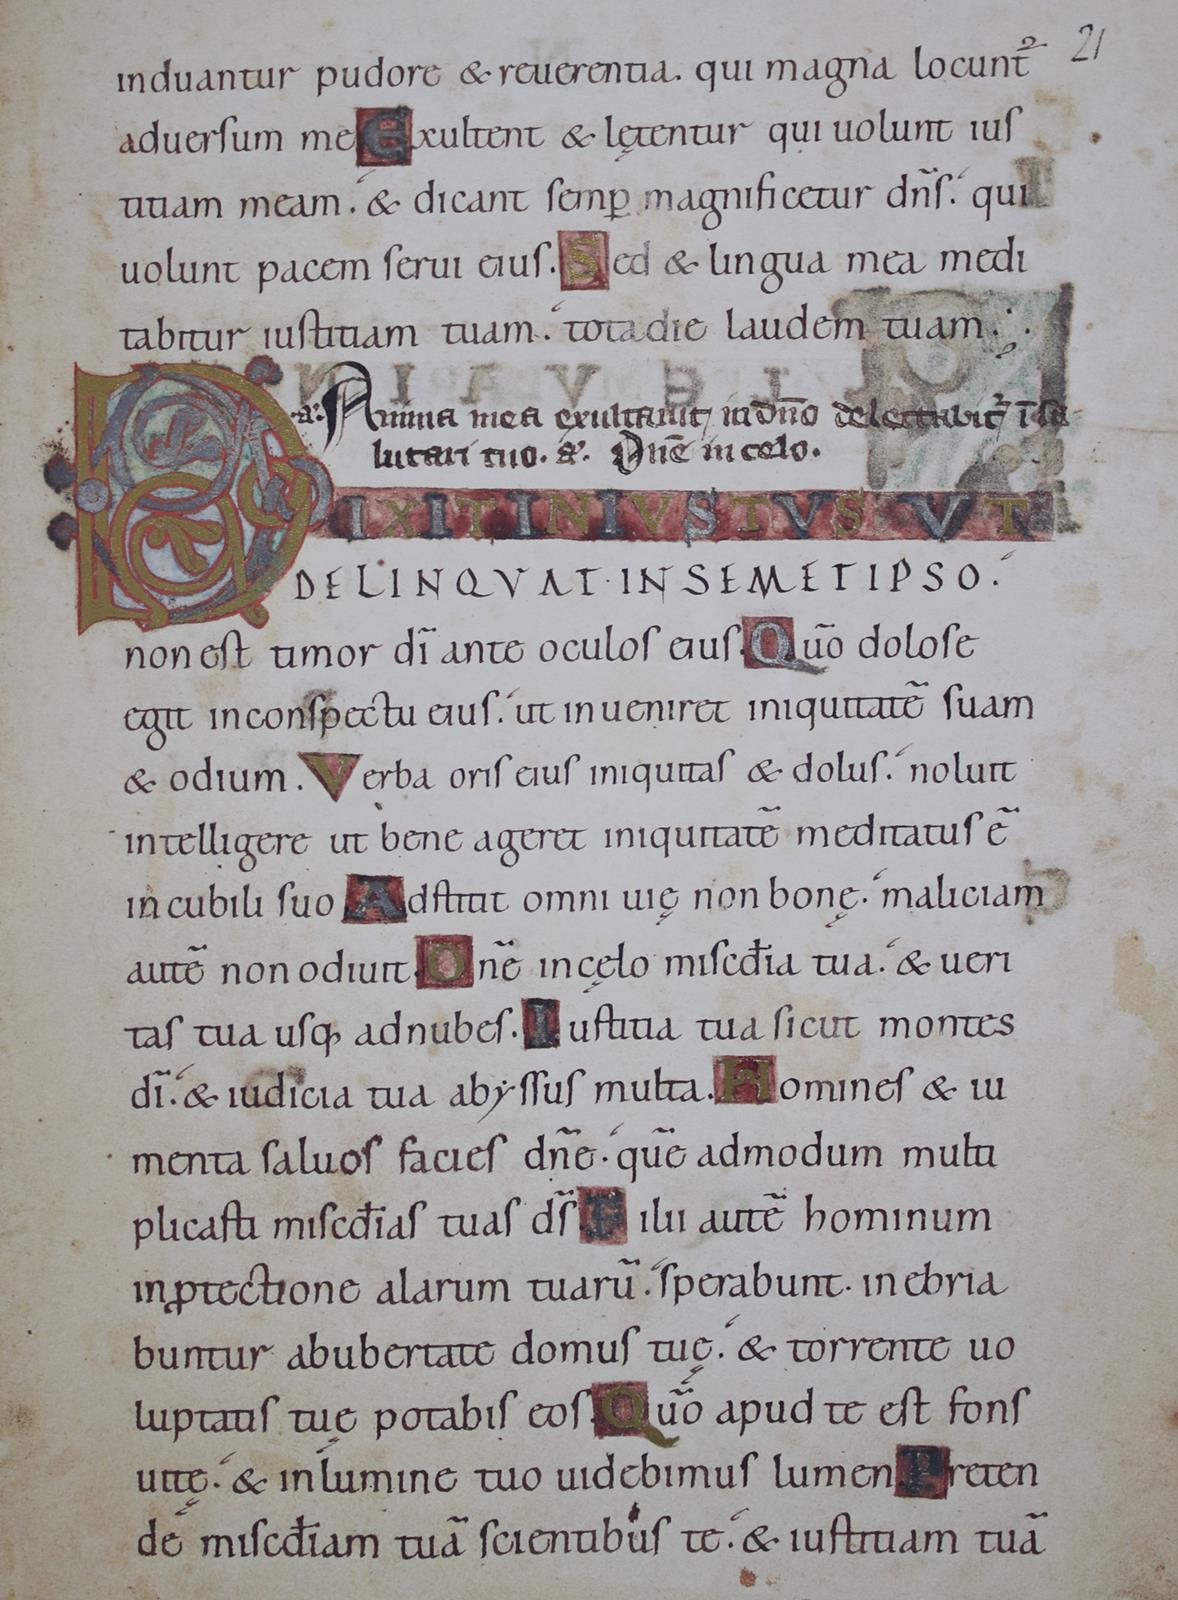 21
induantur pudore & reuerentia. qui magna locunt᷑
aduersum me Exultent & lętentur qui uolunt ius
titiam meam. & dicant semp̲ magnificetur dn̄s. qui
uolunt pacem serui eius. Sed & lingua mea medi
tabitur iustitiam tuam. tota die laudem tuam.
a. Anima mea exultauit in dn̄o delectabit᷑ ī sa
lutari tuo. a. Dn̄e in celo.
DIXIT INIVSTVS VT
DELINQVAT·IN SEMETIPSO.
non est timor dī ante oculos eius. Qūo dolose
egit in conspectu eius. ut inueniret iniquitatē suam
& odium. Verba oris eius iniquitas & dolus. noluit
intelligere ut bene ageret iniquitatē meditatus ē
in cubili suo Adstitit omni uię non bonę. maliciam
autē non odiuit. Dn̄e in cęlo miscd̄ia tua. & ueri
tas tua usq; ad nubes. Iustitia tua sicut montes
dī. & iudicia tua abyssus multa. Homines & iu
menta saluos facies dn̄e. quē admodum multi
plicasti miscd̄ias tuas d̄s Filii autē hominum
in ꝓtectione alarum tuarū. sperabunt. inebria
buntur ab ubertate domus tuę. & torrente uo
luptatis tuę potabis eos. Qūo apud te est fons
uitę. & in lumine tuo uidebimus lumen Preten
de miscd̄iam tuā scientibus te. & iustitiam tuā